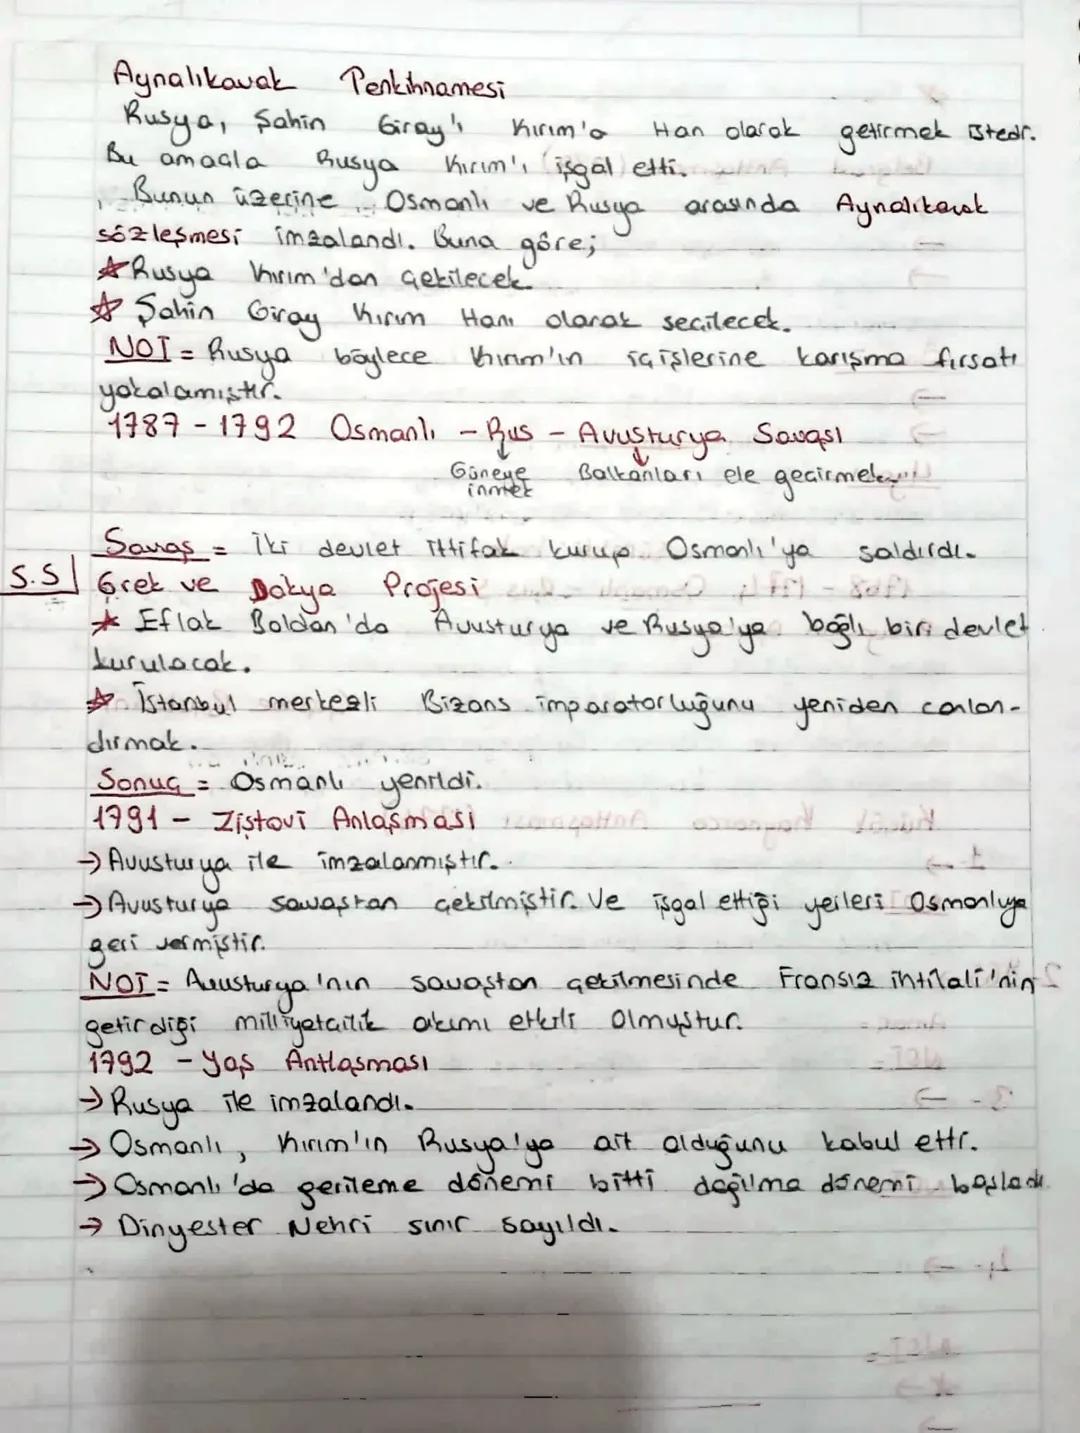 Aynalıkavak Tenkihnamesi
Rusya, Şahin Giray'ı Kırım'a Han olarak getirmek istedi.
Bu amaçla Rusya Kırım'ı işgal etti.
Bunun üzerine Osmanlı ve Rusya arasında Aynalıkavak
sözleşmesi imzalandı. Buna göre;
☆ Rusya Kırım'dan çekilecek.
☆ Şahin Giray Kırım Hanı olarak seçilecek.
NOT = Rusya böylece Kırım'ın içişlerine karışma fırsatı
yakalamıştır.
1787 - 1792 Osmanlı - Rus - Avusturya Savaşı
Güneye Balkanları ele geçirmek
inmek
Savaş = İki devlet ittifak kurup Osmanlı'ya saldırdı.
S.S Grek ve Dakya Projesi
☆ Eflak Boğdan'da Avusturya ve Rusya'ya bağlı bir devlet
kurulacak.
☆ İstanbul merkezli Bizans imparatorluğunu yeniden canlan-
dırmak.
Sonuç = Osmanlı yenildi.
1791 - Ziştovi Anlaşması
→ Avusturya ile imzalanmıştır.
→ Avusturya savaştan çekilmiştir. Ve işgal ettiği yerleri Osmanlıya
geri vermiştir.
NOT = Avusturya'nın savaştan çekilmesinde Fransız ihtilali'nin
getirdiği milliyetçilik akımı etkili olmuştur.
1792 - Yaş Antlaşması
→ Rusya ile imzalandı.
→ Osmanlı, Kırım'ın Rusya'ya ait olduğunu kabul etti.
→ Osmanlı'da gerileme dönemi bitti dağılma dönemi başladı.
→ Dinyester Nehri sınır sayıldı.